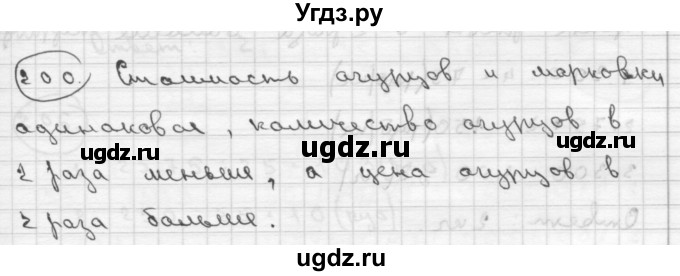 Угдз.ру
200. Стоимость огурцов и моркови
одинаковая, количество огурцов в
2 раза меньше, а цена огурцов в
2 раза больше.
ugdz.ru ugdz.ru ugdz.ru
ugdz.ru ugdz.ru
ugdz.ru